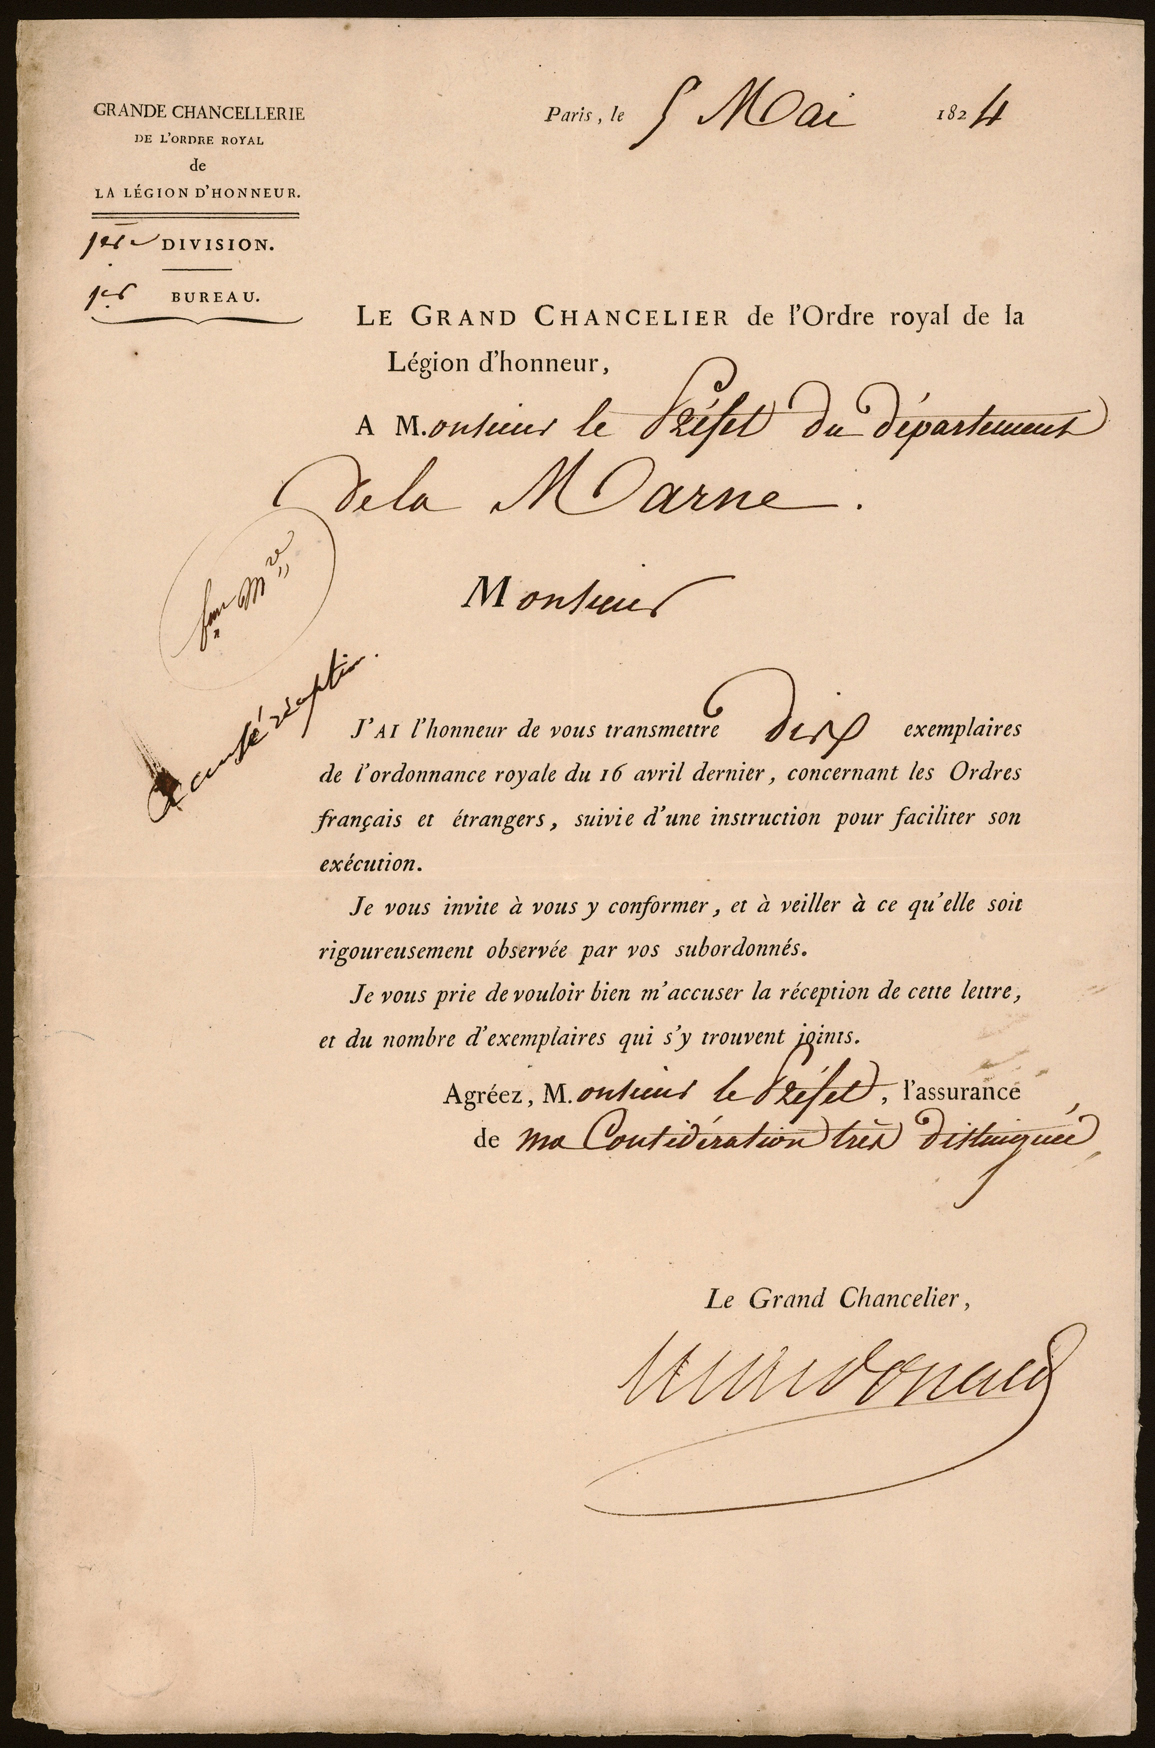 GRANDE CHANCELLERIE
DE L'ORDRE ROYAL
de
LA LÉGION D'HONNEUR.
1ère DIVISION.
1er BUREAU.
Paris, le 5 Mai 1824
LE GRAND CHANCELIER de l'Ordre royal de la
Légion d'honneur,
A M.onsieur le Préfet du département
de la Marne.
Monsieur
accusé réception.
J'AI l'honneur de vous transmettre dix exemplaires
de l'ordonnance royale du 16 avril dernier, concernant les Ordres
français et étrangers, suivie d'une instruction pour faciliter son
exécution.
Je vous invite à vous y conformer, et à veiller à ce qu'elle soit
rigoureusement observée par vos subordonnés.
Je vous prie de vouloir bien m'accuser la réception de cette lettre,
et du nombre d'exemplaires qui s'y trouvent joints.
Agréez, M.onsieur le Préfet, l'assurance
de ma Considération très distinguée,
Le Grand Chancelier,
Macdonald